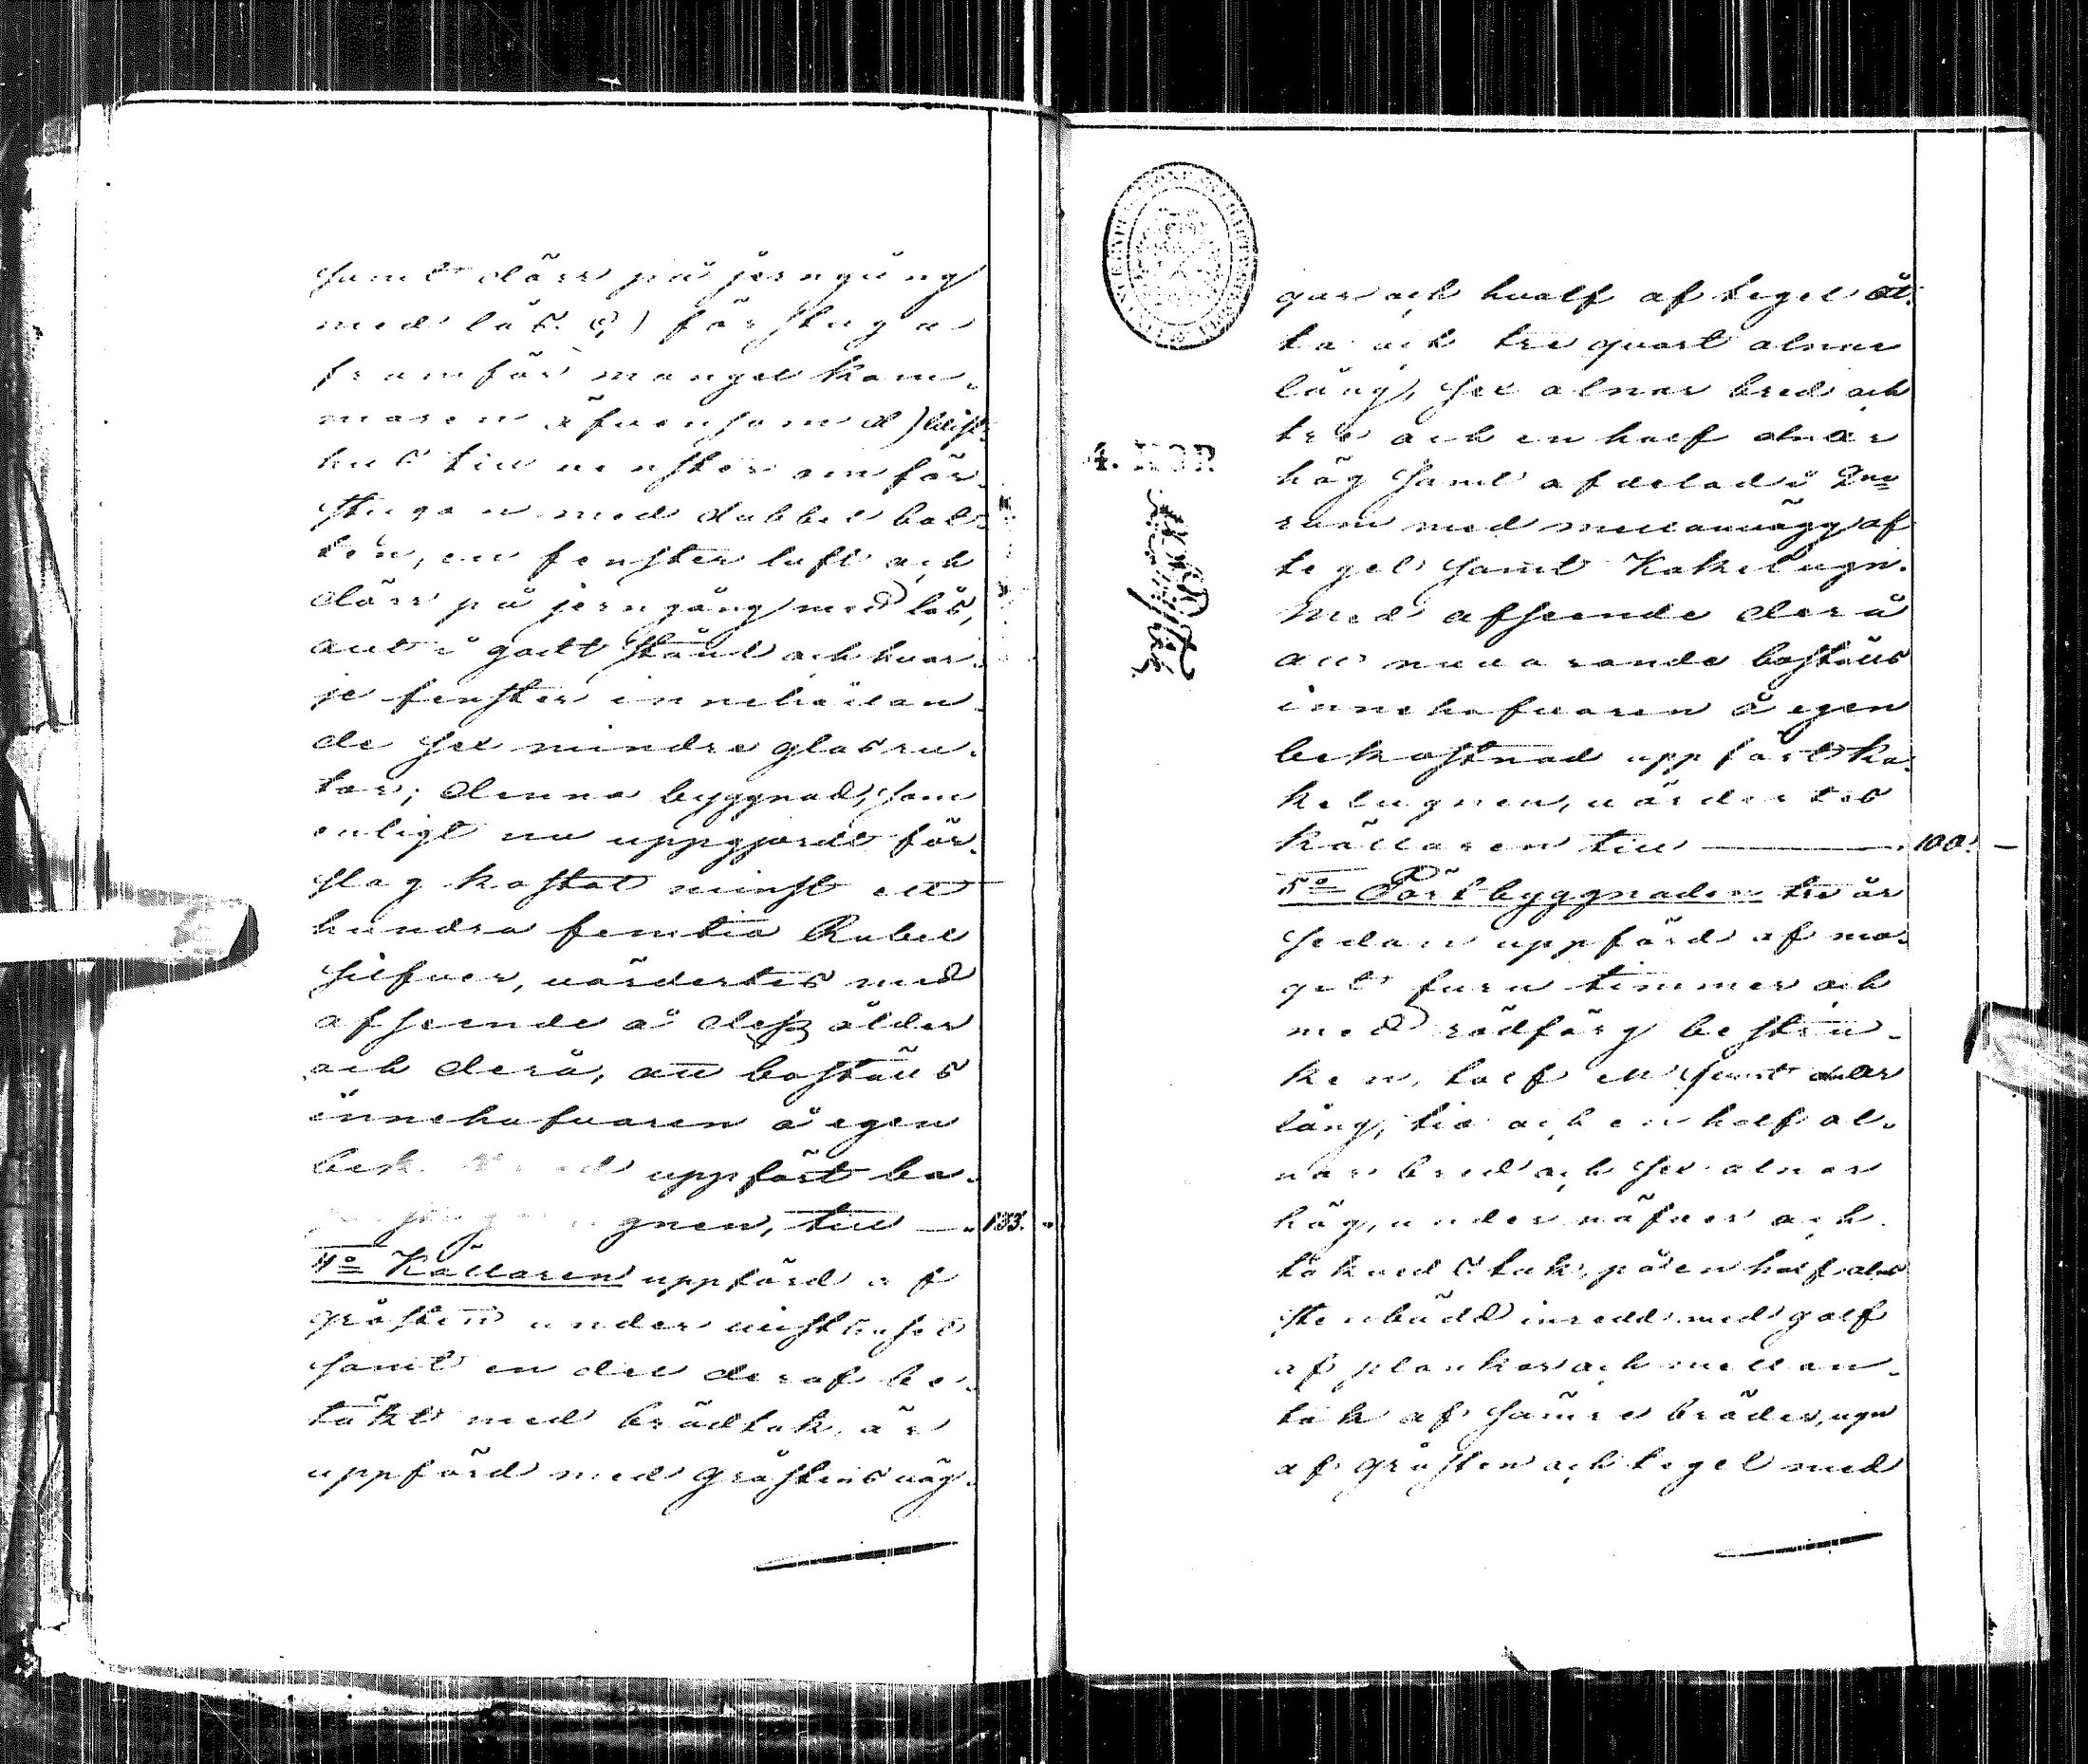 samt dörr på jerngång
med lås. c) förstuga
framför mangel kam-
maren äfvensom d) 
hus till venster om för-
stugan med dubbel bot-
ten, en fenster luft och
dörr på jerngång med lås,
allt i godt stånd och hvar-
je fenster innehållan-
de sex mindre glasru-
tor; denna byggnad, som
enligt nu uppgjordt för-
slag kostat minst ett
hundra femtio Rubel
silfver, värdertes med
afseende å dess ålder
och derå, att boställs
innehafvaren å egen
uppfört ba-
gnen, till — „ 133. „
4o Källaren uppförd af
gråsten under
samt en del deraf be-
täkt med brädtak, är
uppförd med gråstens väg-
gar och hvalf af tegel åt-
ta och tre quart alnar
lång, sex alnar bred och
tre och en half alnar
hög samt afdelad i 2ne
rum med mellanvägg af
tegel samt Kakelugn.
Med afseende derå
att nuvarande boställs
innehafvaren å egen
bekostnad uppfört ka-
kelugnen, värdertes
källaren till — 100. —
5o Pörtbyggnaden tre år
sedan uppförd af mo-
get furu timmer och
med rödfärg bestru-
ken, tolf en femt alnar
lång, tio och en half al-
nar bred och sex alnar
hög, under näfver och
takved s tak, på en half alns
stenbädd inredd med golf
af plankor och mellan-
tak af sämre bräder, ugn
af gråsten och tegel med
4. KOP.